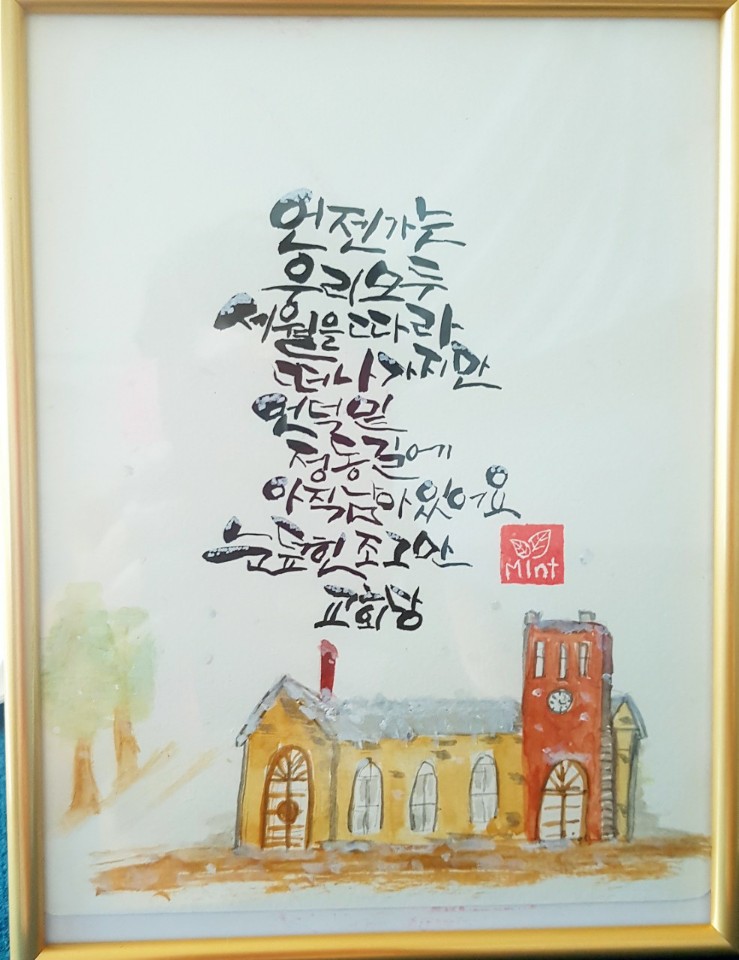 언젠가는
우리모두
세월을 따라
떠나가지만
언덕밑
정동길에
아직남아있어요
눈덮힌조그만
교회당
Mint